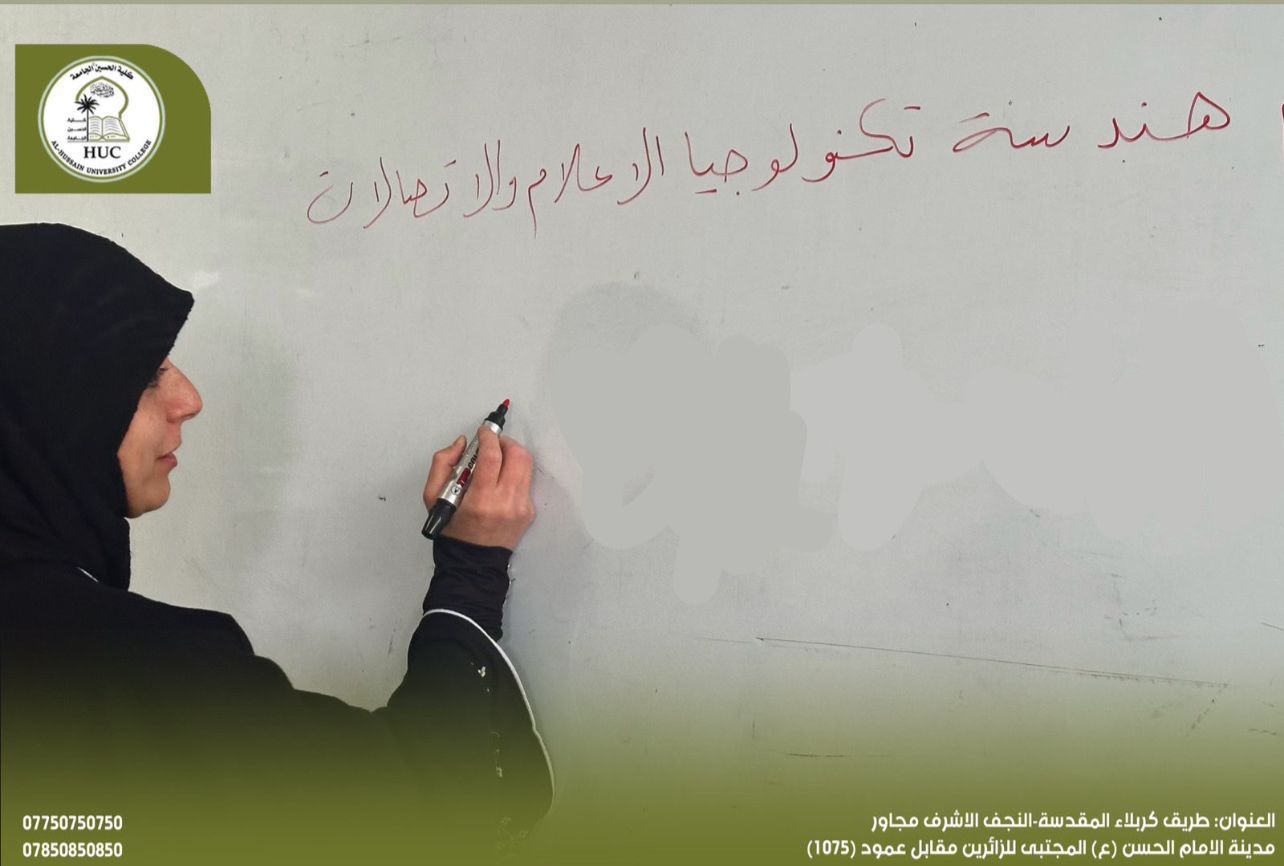 كلية الحسين الجامعة
HUC
AL-HUSSAIN UNIVERSITY COLLEGE
هندسة تكنولوجيا الاعلام والاتصالات
07750750750
07850850850
العنوان: طريق كربلاء المقدسة-النجف الاشرف مجاور
مدينة الامام الحسن (ع) المجتبى للزائرين مقابل عمود (1075)